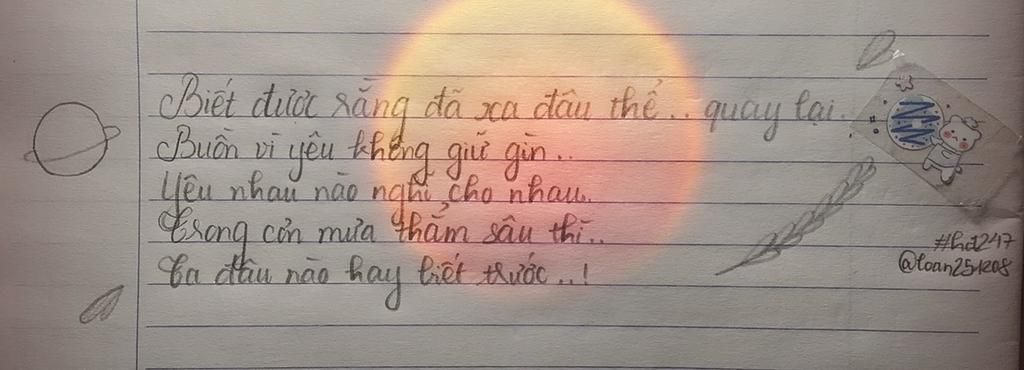 Biết được rằng đã xa đâu thể.. quay lại.
Buồn vì yêu không giữ gìn..
Yêu nhau nào nghĩ cho nhau.
Trong cơn mưa thẳm sâu thì..
Ta đâu nào hay biết trước..!
#hd247
@loan251208